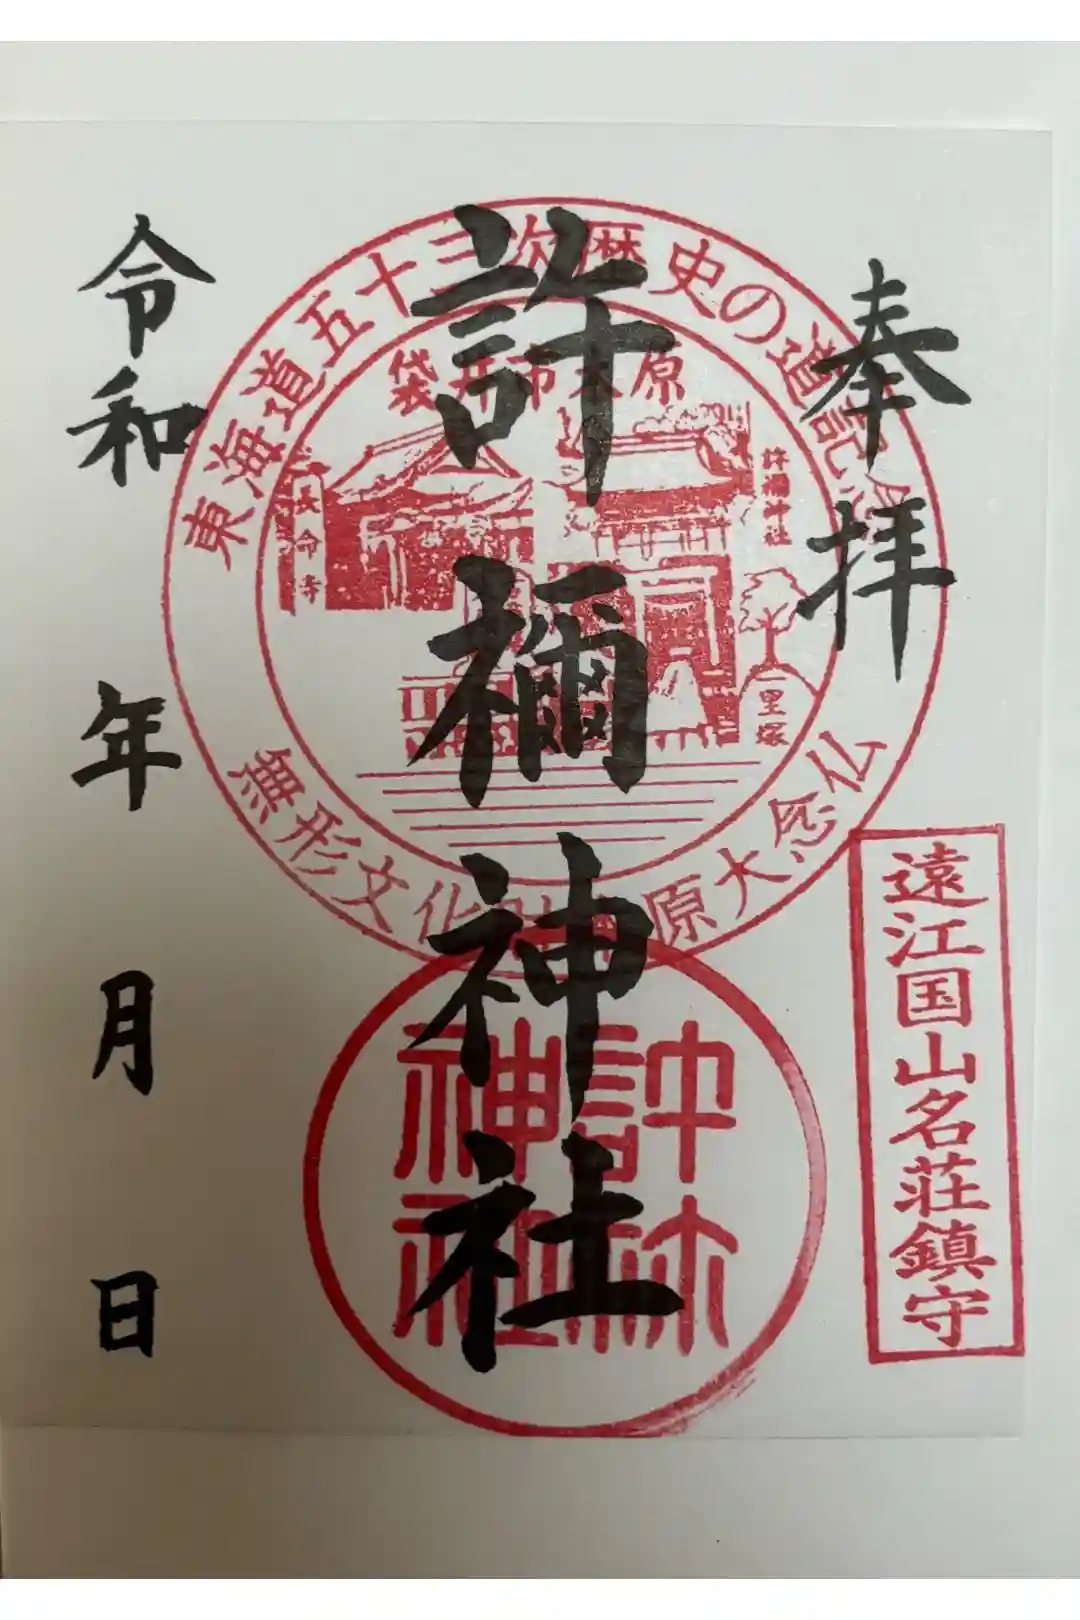 奉拝
許禰神社
令和 年 月 日
東海道五十三次歴史の道記念
袋井市木原
長命寺
許禰神社
一里塚
無形文化財 原大念仏
遠江国山名荘鎮守